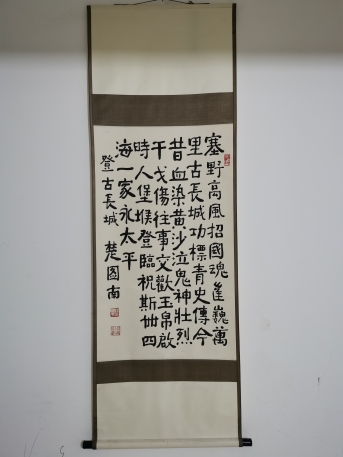 塞野高風招國魂崔巍萬
里古長城功標青史傳今
昔血染黄沙泣鬼神壯烈
干戈傷往事交歡玉帛啟
時人堡堠登臨祝斯丗四
海一家永太平
登古長城 楚圖南